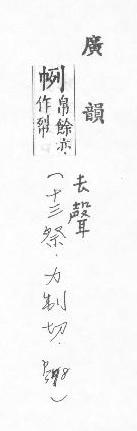 廣韻
帛餘亦
作裂
去聲
(十三祭.力制切.